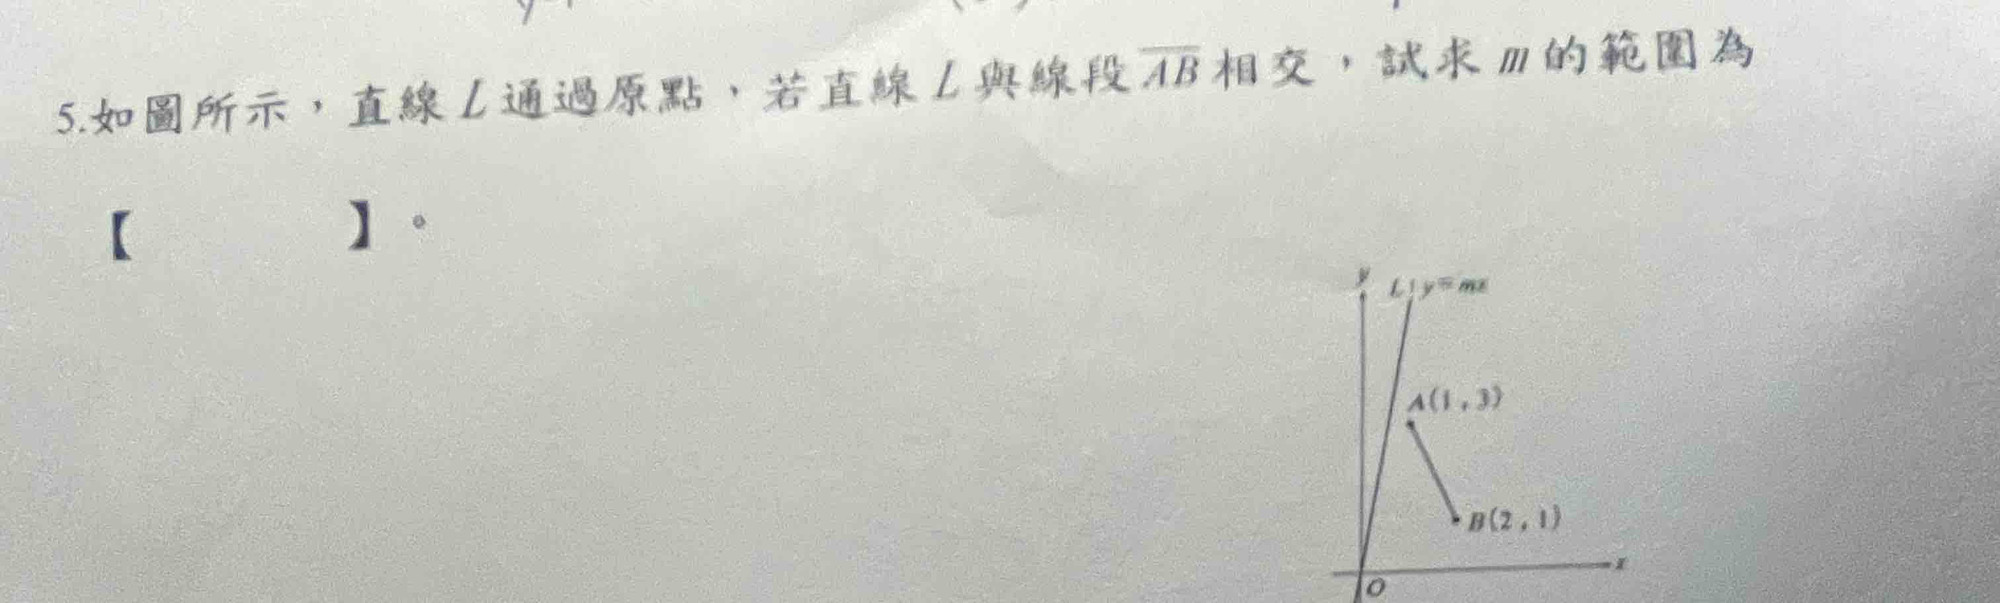 5.如圖所示，直線 L 通過原點，若直線 L 與線段 AB 相交，試求 m 的範圍為
【 】。
y
L：y=mx
A(1，3)
B(2，1)
x
O